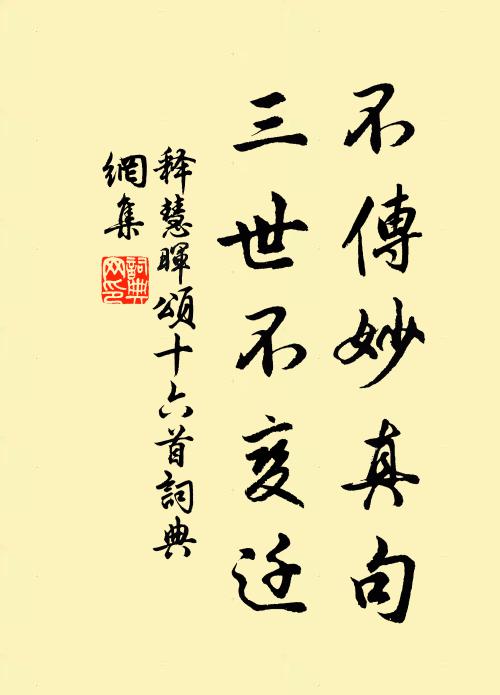 不傳妙真句
三世不变迁
释慧暉頌十六首詞典
網集
詞典
网印